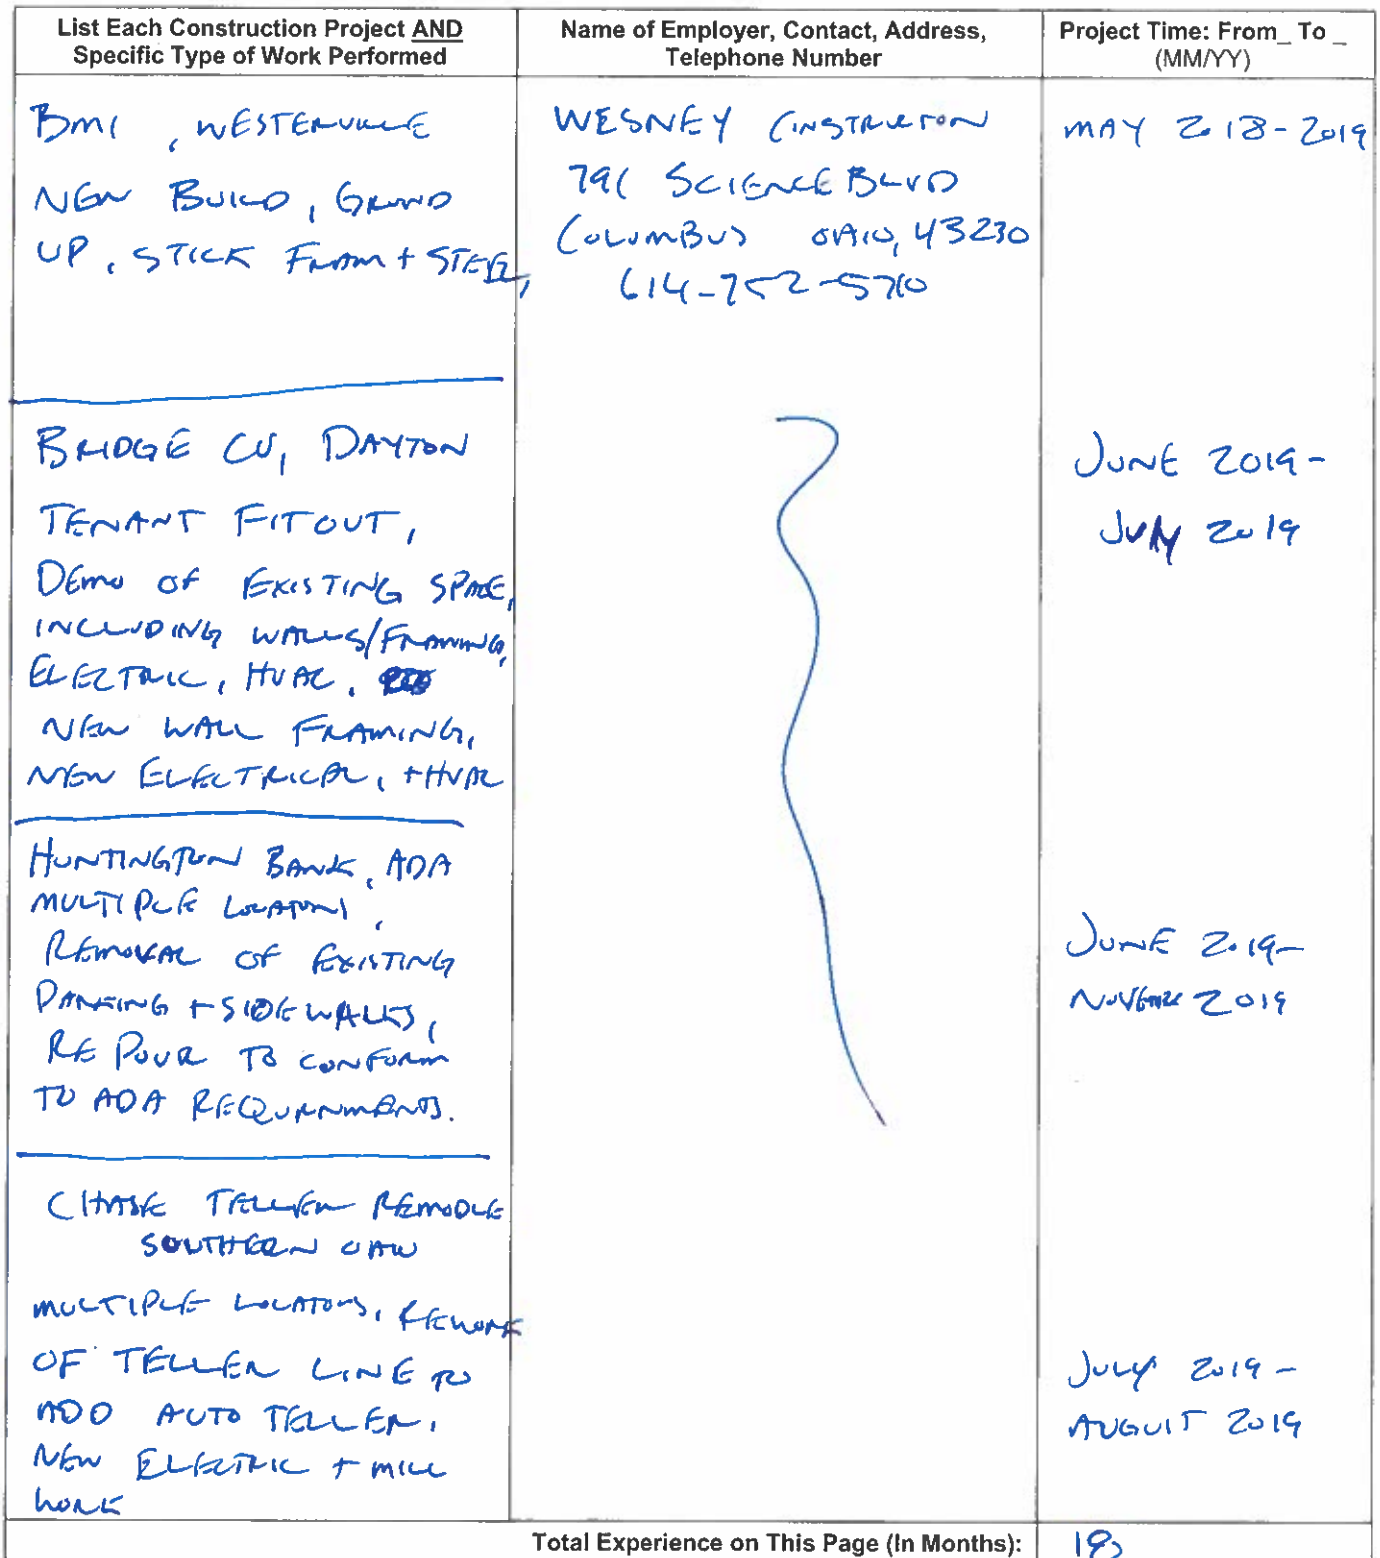 List Each Construction Project AND
Specific Type of Work Performed
Name of Employer, Contact, Address,
Telephone Number
Project Time: From_ To _
(MM/YY)
BMI, WESTERVILLE
NEW BUILD, GROUND
UP, STICK FRAM + STEEL,
WESNEY CONSTRUCTION
791 SCIENCE BLVD
COLUMBUS OHIO, 43230
614-
MAY 2018-2019
BRIDGE CU, DAYTON
TENANT FITOUT,
DEMO OF EXISTING SPACE,
INCLUDING WALLS/FRAMING,
ELECTRIC, HVAC,
NEW WALL FRAMING,
NEW ELECTRICAL, + HVAC
JUNE 2019-
JULY 2019
HUNTINGTON BANK, ADA
MULTIPLE LOCATIONS,
REMOVAL OF EXISTING
PARKING + SIDEWALKS,
RE POUR TO CONFORM
TO ADA REQUIRNMENTS.
JUNE 2019-
NOVEMBER 2019
CHASE TELLER REMODLE
SOUTHERN OHIO
MULTIPLE LOCATIONS, REWORK
OF TELLER LINE TO
ADD AUTO TELLER,
NEW ELECTRIC + MILL
WORK
JULY 2019-
AUGUST 2019
Total Experience on This Page (In Months):